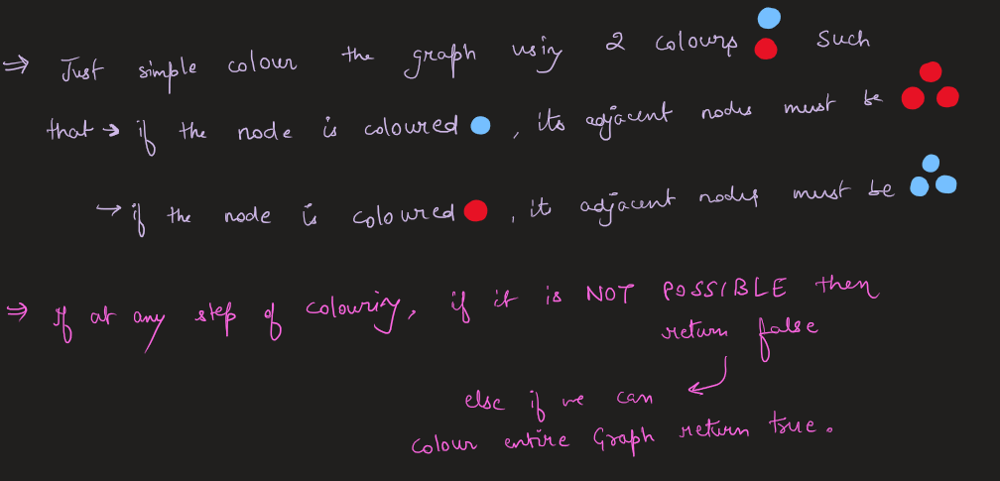 ⇒ Just simple colour the graph using 2 colours such
that → if the node is coloured , its adjacent nodes must be
↪ if the node is coloured , it adjacent nodes must be
⇒ If at any step of colouring, if it is NOT POSSIBLE then
return false
else if we can
colour entire Graph return true.